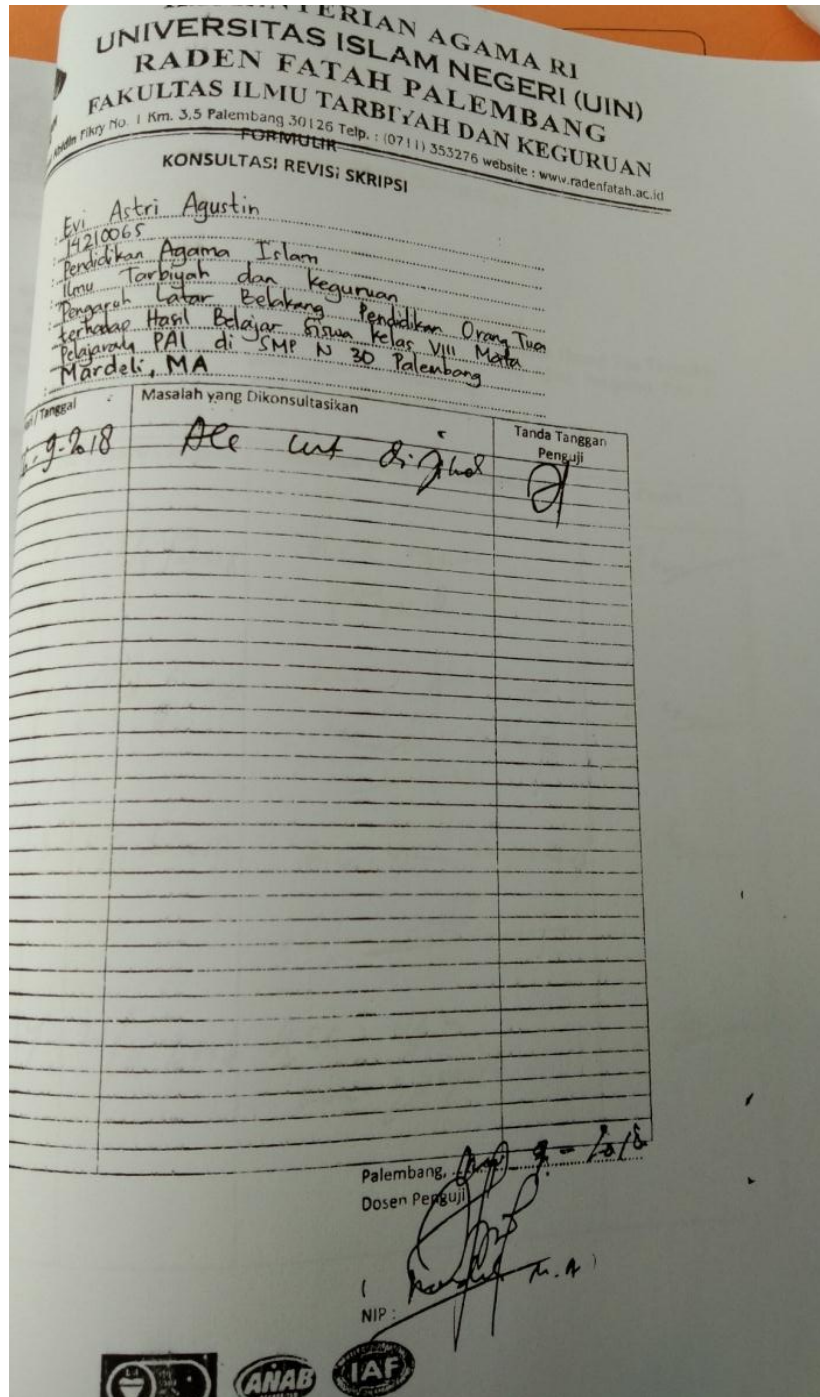 KEMENTERIAN AGAMA RI
UNIVERSITAS ISLAM NEGERI (UIN)
RADEN FATAH PALEMBANG
FAKULTAS ILMU TARBIYAH DAN KEGURUAN
Fikry No. 1 Km. 3,5 Palembang 30126 Telp. : (0711) 353276 website : www.radenfatah.ac.id
FORMULIR
KONSULTASI REVISI SKRIPSI
: Evi Astri Agustin
: 14210065
: Pendidikan Agama Islam
: Ilmu Tarbiyah dan keguruan
: Pengaruh Latar Belakang Pendidikan Orang Tua
terhadap Hasil Belajar Siswa Kelas VIII Mata
Pelajaran PAI di SMP N 30 Palembang
: Mardeli, MA
/ Tanggal
Masalah yang Dikonsultasikan
Tanda Tanggan
Penguji
9-2018
Palembang, 9-2018
Dosen Penguji
( M.A )
NIP :
ANAB
IAF